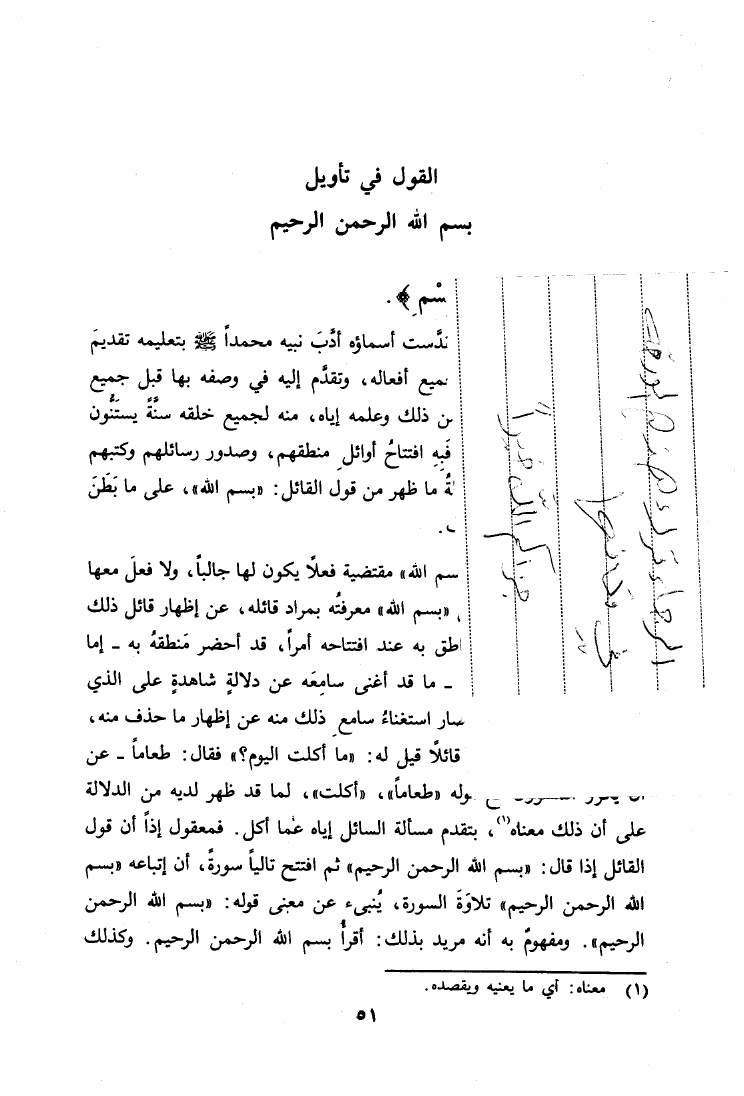 القول في تأويل
بسم الله الرحمن الرحيم
سْمِ﴾.
دَّست أسماؤه أدَّبَ نبيه محمداً ﷺ بتعليمه تقديمَ
ميع أفعاله، وتقدَّم إليه في وصفه بها قبل جميع
ن ذلك وعلمه إياه، منه لجميع خلقه سنَّةً يستَنُّون
فبِهِ افتتاحُ أوائلِ منطقهم، وصدور رسائلهم وكتبهم
ةُ ما ظهر من قول القائل: «بسم الله»، على ما بَطَنَ
سم الله» مقتضية فعلًا يكون لها جالباً، ولا فعلَ معها
«بسم الله» معرفتُه بمراد قائله، عن إظهار قائل ذلك
اطق به عند افتتاحه أمراً، قد أحضر مَنطقهُ به ـ إما
ـ ما قد أغنى سامِعَه عن دلالةٍ شاهدةٍ على الذي
سار استغناءُ سامعِ ذلك منه عن إظهار ما حذف منه،
قائلًا قيل له: «ما أكلت اليوم؟» فقال: طعاماً ـ عن
وله «طعاماً»، «أكلت»، لما قد ظهر لديه من الدلالة
على أن ذلك معناه(١)، بتقدم مسألة السائل إياه عما أكل. فمعقول إذاً أن قول
القائل إذا قال: «بسم الله الرحمن الرحيم» ثم افتتح تالياً سورةً، أن إتباعه «بسم
الله الرحمن الرحيم» تلاوَةَ السورة، يُنبىء عن معنى قوله: «بسم الله الرحمن
الرحيم». ومفهومٌ به أنه مريد بذلك: أقرأُ بسم الله الرحمن الرحيم. وكذلك
(١) معناه: أي ما يعنيه ويقصده.
٥١
الرجاء ترك هذه الورقة
في مكانها
جزاكم الله خيراً